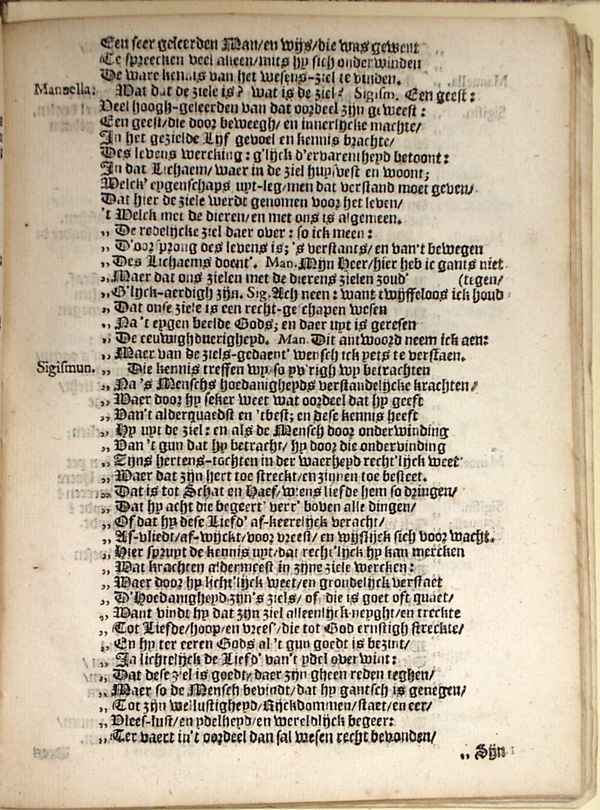 Een seer geleerden Man/en wijs/die was gewent
Te spreecken veel alleen/mits hy sich onderwinden
De ware kennis van het wesens-ziel te vinden.
Manuella. Wat dat de ziele is? wat is de ziel? Sigism. Een geest:
Veel hoogh-geleerden van dat oordeel zijn geweest:
Een geest/die door beweegh/en innerlycke machte/
In het gezielde Lyf gevoel en kennis brachte/
Des levens wercking: g'lijck d'ervarentheyd betoont:
In dat Lichaem/waer in de ziel huyvest en woont;
Welck' eygenschaps uyt-leg/men dat verstand moet geven/
Dat hier de ziele werdt genomen voor het leven/
't Welck met de dieren/en met ons is algemeen.
„ De redelijcke ziel daer over: so ick meen:
„ D'oorsprong des levens is; 's verstants/en van't bewegen
„ Des Lichaems doent'. Man. Mijn Heer/hier heb ic gants niet
„ Maer dat ons zielen met de dierens zielen zoud' (tegen/
„ G'lijck-aerdigh zijn. Sig. Ach neen: want twijffeloos ick houd
„ Dat onse ziele is een recht-geschapen wesen
„ Na 't eygen beelde Gods; en daer uyt is geresen
„ De eeuwighduerigheyd. Man. Dit antwoord neem ick aen:
„ Maer van de ziels-gedaent' wensch ick yets te verstaen.
Sigismun. „ Die kennis treffen wy/so wy righ wy betrachten
„ Na 's Menschs hoedanigheyds verstandelijcke krachten/
„ Waer door hy seker weet wat oordeel dat hy geeft
„ Van't alderquaedst en 'tbest; en dese kennis heeft
„ Hy uyt de ziel: en als de Mensch door onderwinding
„ Van 't gun dat hy betracht/hy door die ondervinding
„ Zijns hertens-tochten in der waerheyd recht'lijck weet
„ Waer dat zijn hert toe streckt/en zinnen toe besteet.
„ Dat is tot Schat en Haef/wiens liefde hem so dringen/
„ Dat hy acht die begeert' verr' boven alle dingen/
„ Of dat hy dese Liefd' af-keerelijck veracht/
„ Af-vliedt/af-wyckt/voor vreest/en wijslijck sich voor wacht.
„ Hier spruyt de kennis uyt/dat recht'lijck hy kan mercken
„ Wat krachten aldermeest in zijne ziele wercken:
„ Waer door hy licht'lijck weet/en grondelijck verstaet
„ D'Hoedanigheyd zijn's ziels/of die is goet oft quaet/
„ Want vindt hy dat zijn ziel alleenlijck neyght/en treckte
„ Tot Liefde/hoop/en vrees/die tot God ernstigh streckte/
„ En hy ter eeren Gods al 't gun goedt is bezint/
„ Ja lichtelijck de Liefd' van't ydel overwint:
„ Dat dese ziel is goedt/daer zijn gheen reden teghen/
„ Maer so de Mensch bevindt/dat hy gantsch is genegen/
„ Tot zijn wellustigheyd/Rijckdommen/staet/en eer/
„ Vlees-lust/en ydelheyd/en wereldlijck begeer:
„ Ter vaert in't oordeel dan sal wesen recht bevonden/
„ Zijn